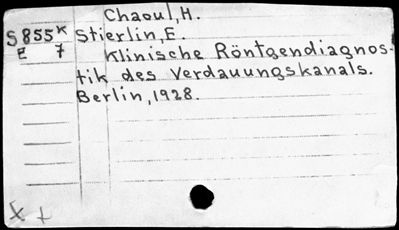 Chaoul, H.
S855K Stierlin, E.
E 7 Klinische Röntgendiagnos-
tik des Verdauungskanals.
Berlin, 1928.
X +